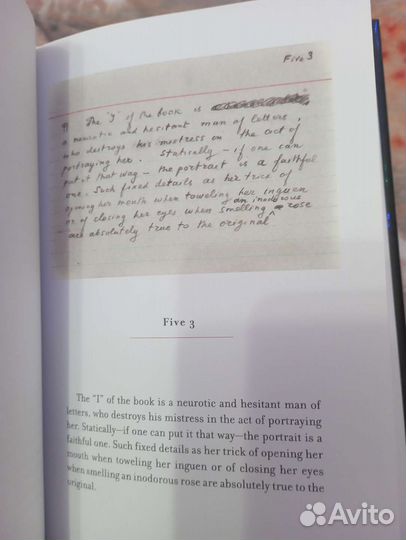 Five 3
The "I" of the book is
a neurotic and hesitant man of letters,
who destroys his mistress in the act of
portraying her. Statically – if one can
put it that way – the portrait is a faithful
one. Such fixed details as her trick of
opening her mouth when toweling her inguen
or of closing her eyes when smelling an inodorous rose
are absolutely true to the original
Five 3
The “I” of the book is a neurotic and hesitant man of
letters, who destroys his mistress in the act of portraying
her. Statically—if one can put it that way—the portrait is a
faithful one. Such fixed details as her trick of opening her
mouth when toweling her inguen or of closing her eyes
when smelling an inodorous rose are absolutely true to the
original.
Avito